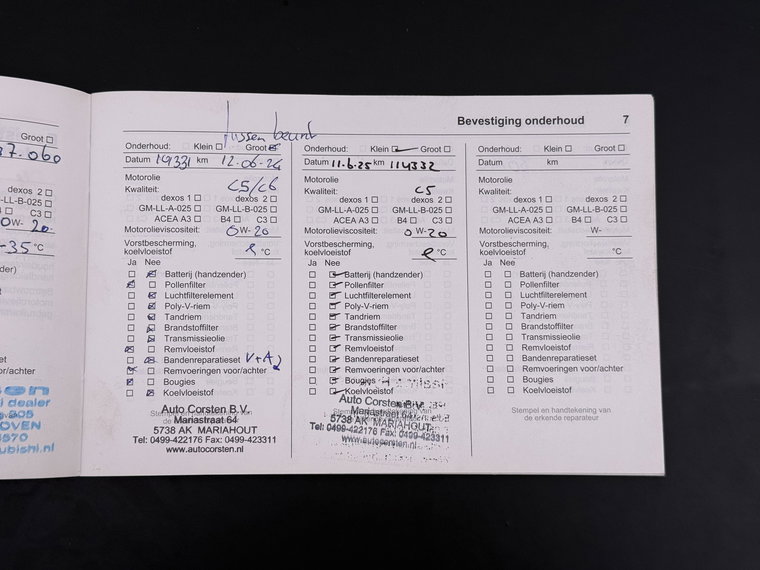 Bevestiging onderhoud 7
Groot
37.060
dexos 2
-LL-B-025
C3
0W- 20
-35 °C
der)
et
achter
i dealer
OVEN
ubishi.nl
tussen beurt
Onderhoud: Klein Groot
Datum km 12-06-24
Motorolie
Kwaliteit: C5/C6
dexos 1 dexos 2
GM-LL-A-025 GM-LL-B-025
ACEA A3 B4 C3
Motorolieviscositeit: 0 W- 20
Vorstbescherming,
koelvloeistof °C
Ja Nee
Batterij (handzender)
Pollenfilter
Luchtfilterelement
Poly-V-riem
Tandriem
Brandstoffilter
Transmissieolie
Remvloeistof
Bandenreparatieset V+A
Remvoeringen voor/achter
Bougies
Koelvloeistof
Auto Corsten B.V.
Mariastraat 64
5738 AK MARIAHOUT
Tel: 0499-422176 Fax: 0499-423311
www.autocorsten.nl
Onderhoud: Klein Groot
Datum 11-6-25 km 114332
Motorolie
Kwaliteit: C5
dexos 1 dexos 2
GM-LL-A-025 GM-LL-B-025
ACEA A3 B4 C3
Motorolieviscositeit: 0 W- 20
Vorstbescherming,
koelvloeistof °C
Ja Nee
Batterij (handzender)
Pollenfilter
Luchtfilterelement
Poly-V-riem
Tandriem
Brandstoffilter
Transmissieolie
Remvloeistof
Bandenreparatieset
Remvoeringen voor/achter
Bougies
Koelvloeistof
Auto Corsten B.V.
Mariastraat 64
5738 AK MARIAHOUT
Tel: 0499-422176 Fax: 0499-423311
www.autocorsten.nl
Onderhoud: Klein Groot
Datum km
Motorolie
Kwaliteit:
dexos 1 dexos 2
GM-LL-A-025 GM-LL-B-025
ACEA A3 B4 C3
Motorolieviscositeit: W-
Vorstbescherming,
koelvloeistof °C
Ja Nee
Batterij (handzender)
Pollenfilter
Luchtfilterelement
Poly-V-riem
Tandriem
Brandstoffilter
Transmissieolie
Remvloeistof
Bandenreparatieset
Remvoeringen voor/achter
Bougies
Koelvloeistof
Stempel en handtekening van
de erkende reparateur